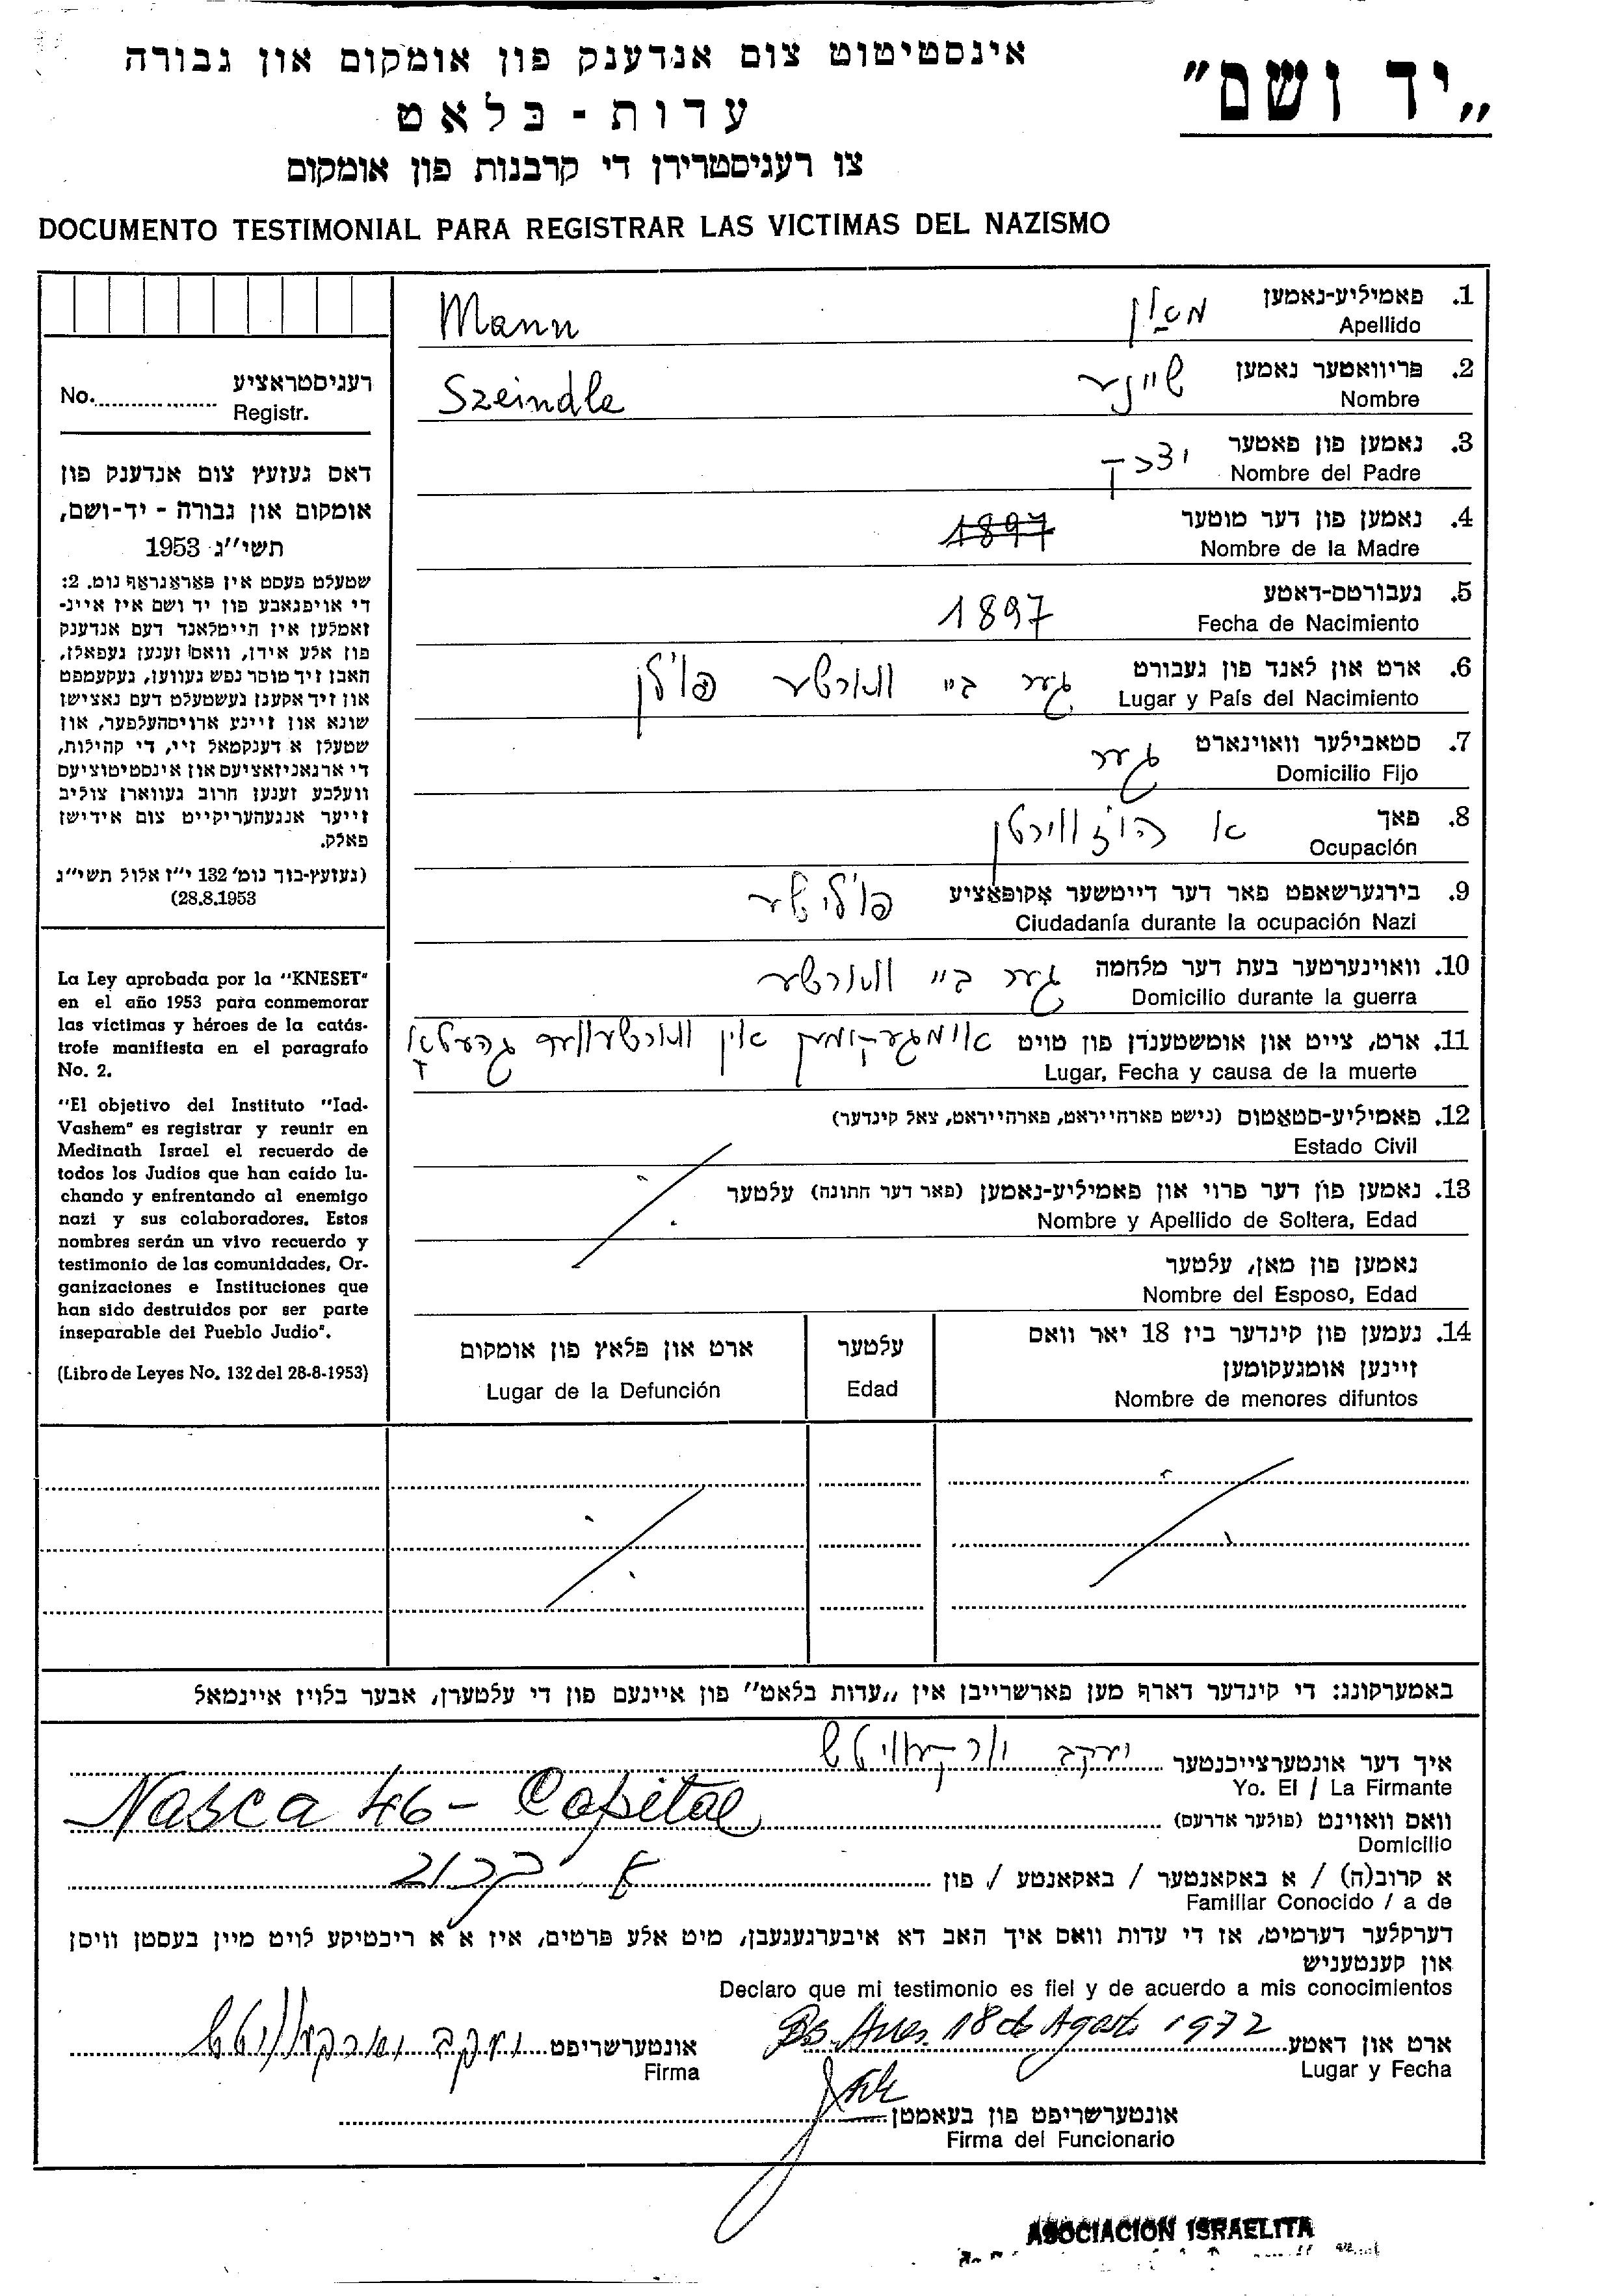 „יד ושם"
אינסטיטוט צום אנדענק פון אומקום און גבורה
עדות - בלאט
צו רעגיסטרירן די קרבנות פון אומקום
DOCUMENTO TESTIMONIAL PARA REGISTRAR LAS VICTIMAS DEL NAZISMO
רעגיסטראציע No.
Registr.
דאס געזעץ צום אנדענק פון
אומקום און גבורה - יד-ושם,
תשי"ג 1953
שטעלט פעסט אין פאראגראף נומ. 2:
די אויפגאבע פון יד ושם איז איינ-
זאמלען אין היימלאנד דעם אנדענק
פון אלע אידן, וואס זענען געפאלן,
האבן זיך מוסר נפש געווען, געקעמפט
און זיך אקעגן געשטעלט דעם נאצישן
שונא און זיינע ארויסהעלפער, און
שטעלן א דענקמאל זיי, די קהילות,
די ארגאניזאציעס און אינסטיטוציעס
וועלכע זענען חרוב געווארן צוליב
זייער אנגעהעריקייט צום אידישן
פאלק.
(געזעץ-בוך נומ' 132 י"ז אלול תשי"ג
28.8.1953)
La Ley aprobada por la "KNESET"
en el año 1953 para conmemorar
las víctimas y héroes de la catás-
trofe manifiesta en el paragrafo
No. 2.
"El objetivo del Instituto "Iad-
Vashem" es registrar y reunir en
Medinath Israel el recuerdo de
todos los Judíos que han caído lu-
chando y enfrentando al enemigo
nazi y sus colaboradores. Estos
nombres serán un vivo recuerdo y
testimonio de las comunidades, Or-
ganizaciones e Instituciones que
han sido destruídos por ser parte
inseparable del Pueblo Judío".
(Libro de Leyes No. 132 del 28-8-1953)
1. פאמיליע-נאמען מאן Mann
Apellido
2. פריוואטער נאמען Szeindle
Nombre
3. נאמען פון פאטער יצחק
Nombre del Padre
4. נאמען פון דער מוטער 1897
Nombre de la Madre
5. געבורטס-דאטע 1897
Fecha de Nacimiento
6. ארט און לאנד פון געבורט גער ביי ווארשע פוילן
Lugar y País del Nacimiento
7. סטאבילער וואוינארט גער
Domicilio Fijo
8. פאך א הויזווירטן
Ocupación
9. בירגערשאפט פאר דער דייטשער אקופאציע פוילישע
Ciudadanía durante la ocupación Nazi
10. וואוינערטער בעת דער מלחמה גער ביי ווארשע
Domicilio durante la guerra
11. ארט, צייט און אומשטענדן פון טויט אומגעקומען אין ווארשעווער געטא
Lugar, Fecha y causa de la muerte
12. פאמיליע-סטאטוס (נישט פארהייראט, פארהייראט, צאל קינדער)
Estado Civil
13. נאמען פון דער פרוי און פאמיליע-נאמען (פאר דער חתונה) עלטער
Nombre y Apellido de Soltera, Edad
נאמען פון מאן, עלטער
Nombre del Esposo, Edad
14. נעמען פון קינדער ביז 18 יאר וואס
זיינען אומגעקומען
Nombre de menores difuntos
עלטער
Edad
ארט און פלאץ פון אומקום
Lugar de la Defunción
באמערקונג: די קינדער דארף מען פארשרייבן אין „עדות בלאט" פון איינעם פון די עלטערן, אבער בלויז איינמאל
איך דער אונטערצייכנטער יעקב
Yo. El / La Firmante
Nasca 46 - Capital
וואס וואוינט (פולער אדרעס)
Domicilio
א קרוב(ה) / א באקאנטער / באקאנטע / פון
Familiar Conocido / a de
דערקלער דערמיט, אז די עדות וואס איך האב דא איבערגעגעבן, מיט אלע פרטים, איז א ריכטיקע לויט מיין בעסטן וויסן
און קענטעניש
Declaro que mi testimonio es fiel y de acuerdo a mis conocimientos
ארט און דאטע Bs. Aires 18 de Agosto 1972
Lugar y Fecha
אונטערשריפט יעקב
Firma
אונטערשריפט פון בעאמטן
Firma del Funcionario
ASOCIACION ISRAELITA